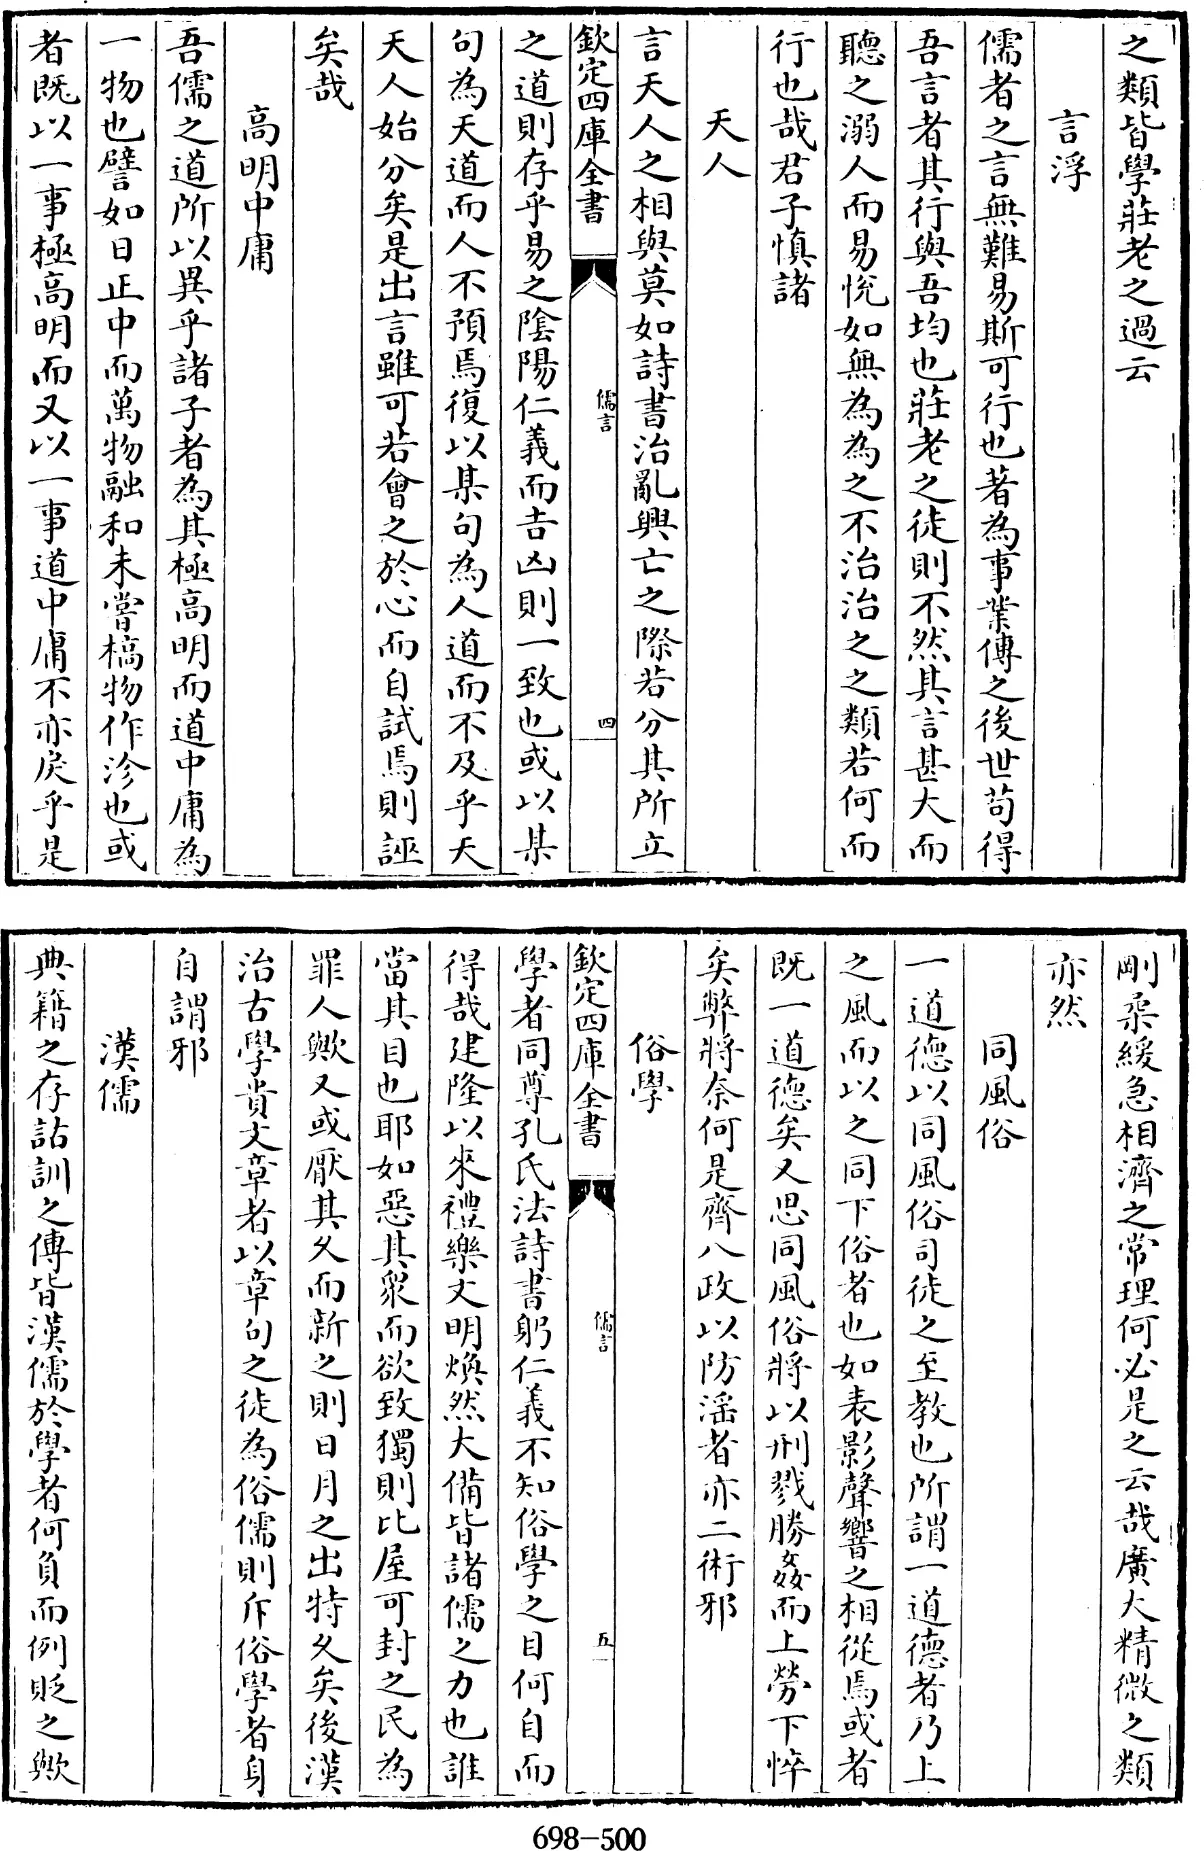 之類皆學莊老之過云
言浮
儒者之言無難易斯可行也著為事業傳之後世苟得
吾言者其行與吾均也莊老之徒則不然其言甚大而
聽之溺人而易恱如無為為之不治治之之類若何而
行也哉君子慎諸
天人
言天人之相與莫如詩書治亂興亡之際若分其所立
欽定四庫全書
儒言
四
之道則存乎易之陰陽仁義而吉凶則一致也或以某
句為天道而人不預焉復以某句為人道而不及乎天
天人始分矣是出言雖可若會之於心而自試焉則誣
矣哉
高明中庸
吾儒之道所以異乎諸子者為其極高明而道中庸為
一物也譬如日正中而萬物融和未嘗槁物作沴也或
者既以一事極高明而又以一事道中庸不亦戾乎是
剛柔緩急相濟之常理何必是之云哉廣大精微之類
亦然
同風俗
一道德以同風俗司徒之至教也所謂一道德者乃上
之風而以之同下俗者也如表影聲響之相從焉或者
既一道德矣又思同風俗將以刑戮勝姦而上勞下悴
矣弊將奈何是齊八政以防淫者亦二術邪
俗學
欽定四庫全書
儒言
五
學者同尊孔氏法詩書躬仁義不知俗學之目何自而
得哉建隆以來禮樂文明煥然大備皆諸儒之力也誰
當其目也耶如惡其衆而欲致獨則比屋可封之民為
罪人歟又或厭其久而新之則日月之出特久矣後漢
治古學貴文章者以章句之徒為俗儒則斥俗學者身
自謂邪
漢儒
典籍之存詁訓之傳皆漢儒於學者何負而例貶之歟
698-500